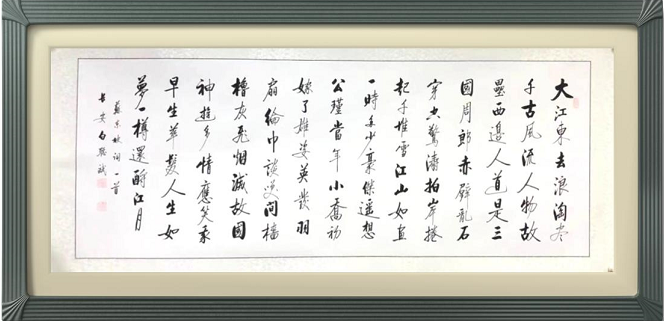 大江東去浪淘尽
千古風流人物故
壘西邊人道是三
國周郎赤壁乱石
穿空驚濤拍岸捲
起千堆雪江山如画
一時多少豪傑遥想
公瑾當年小喬初
嫁了雄姿英發羽
扇綸巾談笑间樯
櫓灰飛烟滅故國
神遊多情應笑我
早生華髮人生如
夢一樽還酹江月
蘇東坡詞一首
长安白